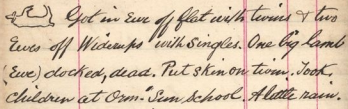 Got in Ewe off flat with twins & two
Ewes off Widerups with Singles. One big lamb
(Ewe) docked, dead. Put skin on twin. Took
children at Orm. Sun School. A little rain.